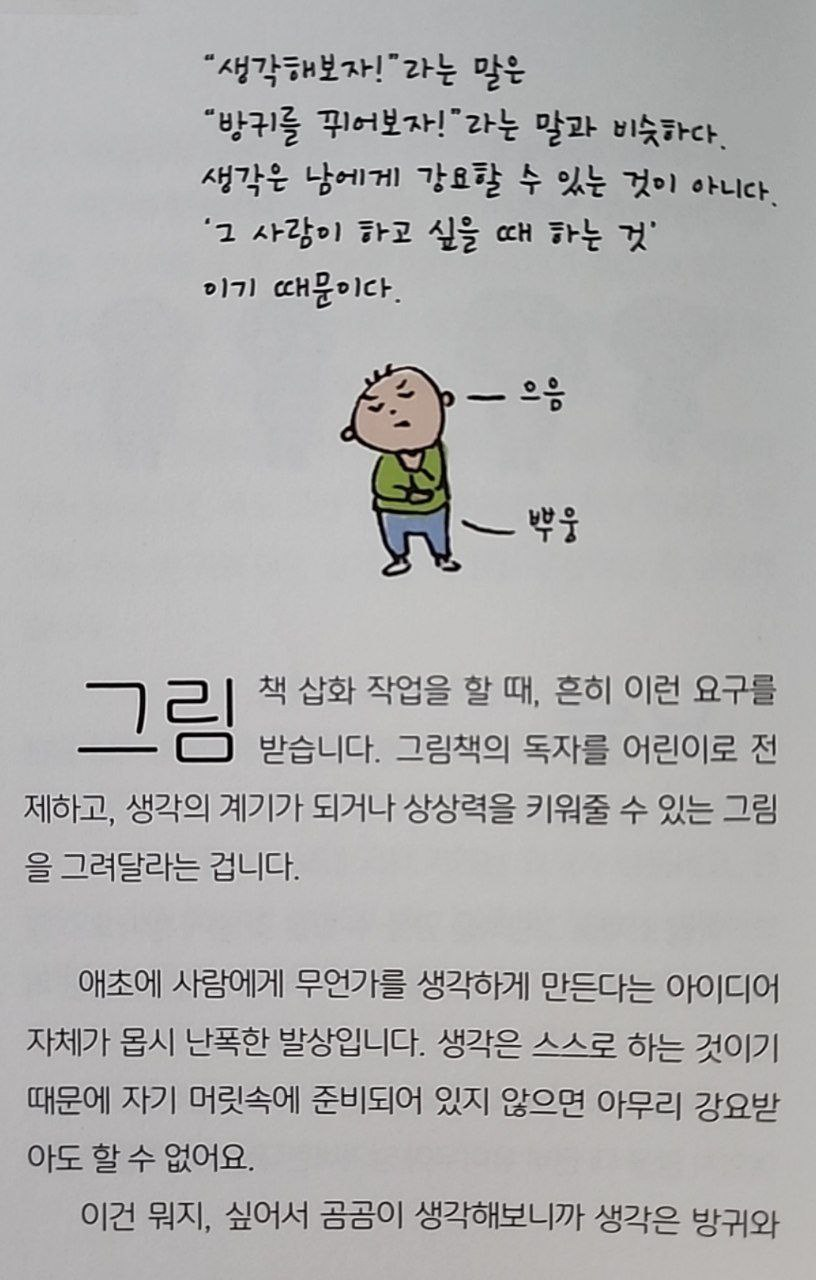 “생각해보자!”라는 말은
“방귀를 뀌어보자!”라는 말과 비슷하다.
생각은 남에게 강요할 수 있는 것이 아니다.
‘그 사람이 하고 싶을 때 하는 것’
이기 때문이다.
으음
뿌웅
그림책 삽화 작업을 할 때, 흔히 이런 요구를
받습니다. 그림책의 독자를 어린이로 전
제하고, 생각의 계기가 되거나 상상력을 키워줄 수 있는 그림
을 그려달라는 겁니다.
애초에 사람에게 무언가를 생각하게 만든다는 아이디어
자체가 몹시 난폭한 발상입니다. 생각은 스스로 하는 것이기
때문에 자기 머릿속에 준비되어 있지 않으면 아무리 강요받
아도 할 수 없어요.
이건 뭐지, 싶어서 곰곰이 생각해보니까 생각은 방귀와